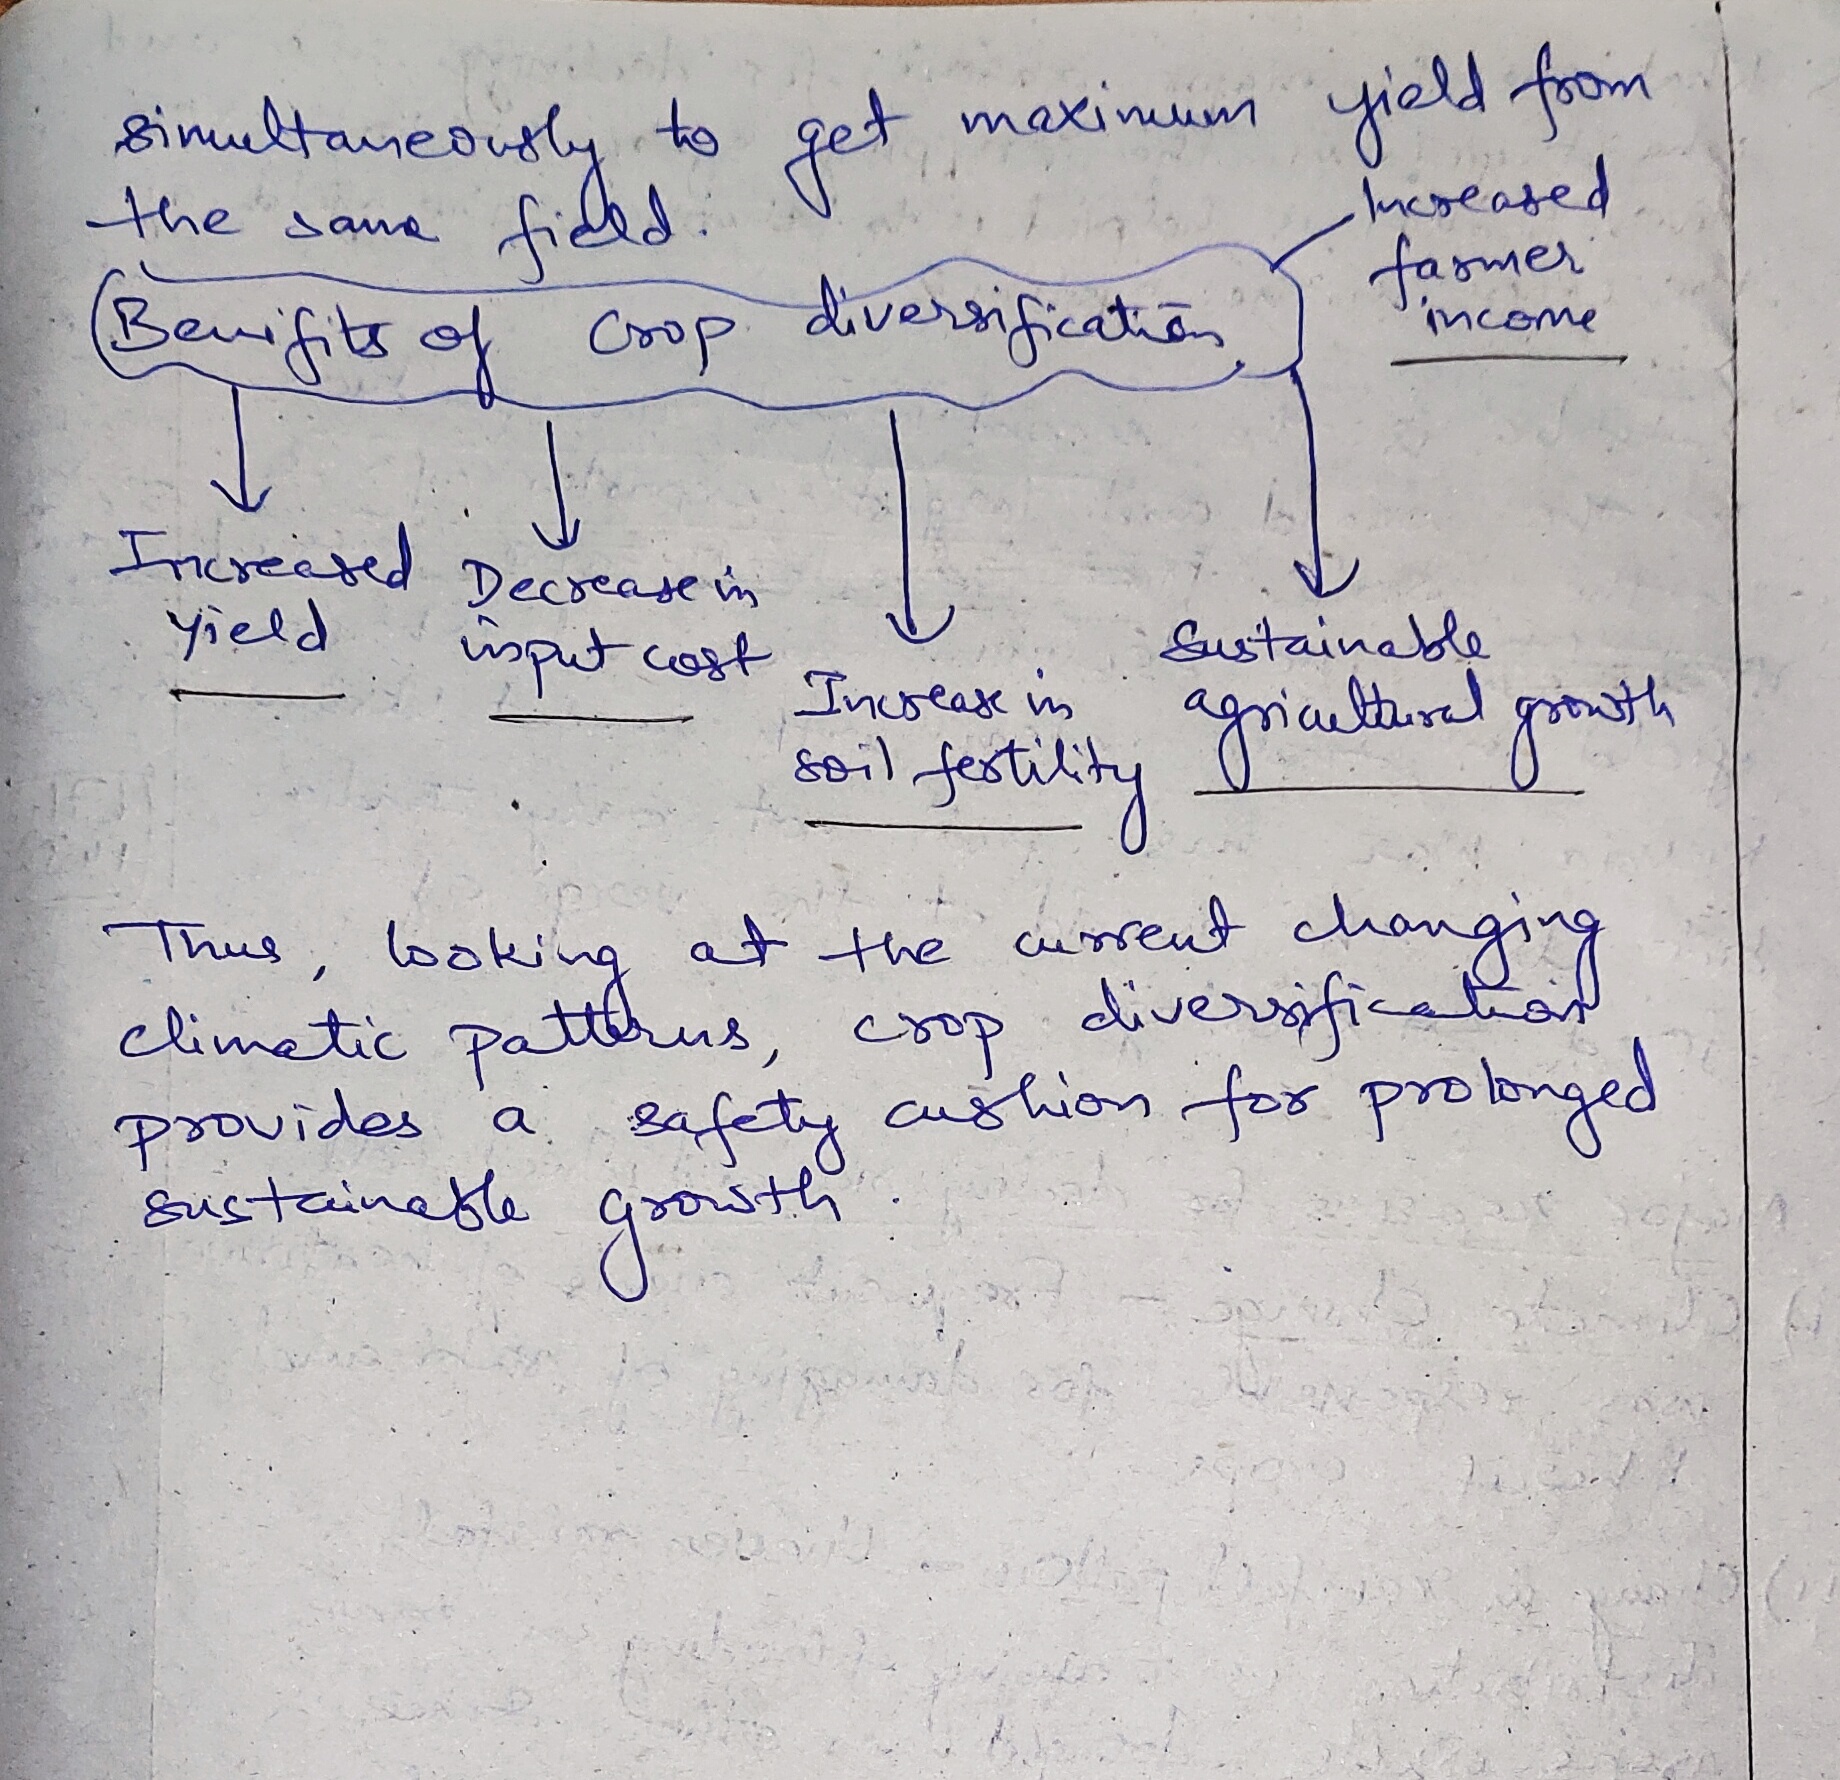 simultaneously to get maximum yield from
the same field.
Increased
farmer
income
Benifits of Crop diversification
Increased
yield
Decrease in
input cost
Increase in
soil fertility
Sustainable
agricultural growth
Thus, looking at the current changing
climatic patterns, crop diversification
provides a safety cushion for prolonged
sustainable growth.